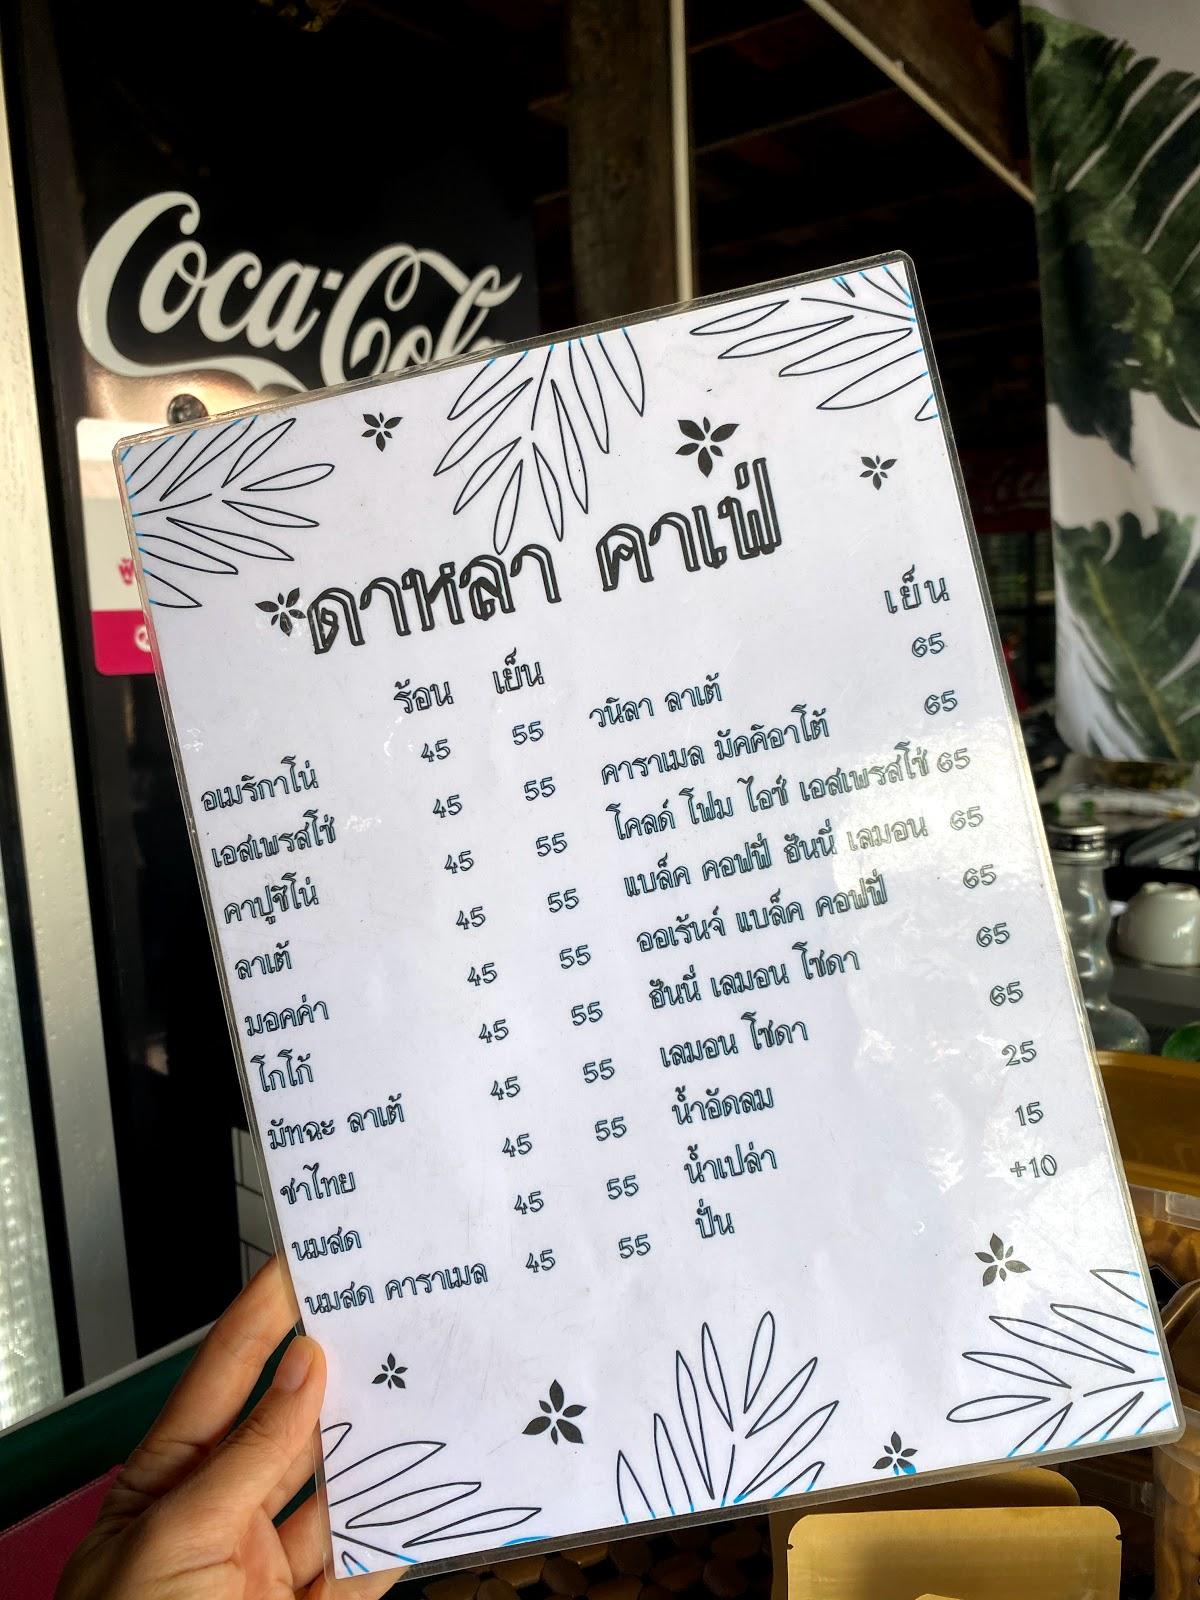 Coca-Cola
ดาหลา คาเฟ่
ร้อน เย็น
อเมริกาโน่ 45 55
เอสเพรสโซ่ 45 55
คาปูชิโน่ 45 55
ลาเต้ 45 55
มอคค่า 45 55
โกโก้ 45 55
มัทฉะ ลาเต้ 45 55
ชาไทย 45 55
นมสด 45 55
นมสด คาราเมล 45 55
เย็น
วนิลา ลาเต้ 65
คาราเมล มัคคิอาโต้ 65
โคลด์ โฟม ไอซ์ เอสเพรสโซ่ 65
แบล็ค คอฟฟี่ ฮันนี่ เลมอน 65
ออเร้นจ์ แบล็ค คอฟฟี่ 65
ฮันนี่ เลมอน โซดา 65
เลมอน โซดา 65
น้ำอัดลม 25
น้ำเปล่า 15
ปั่น +10